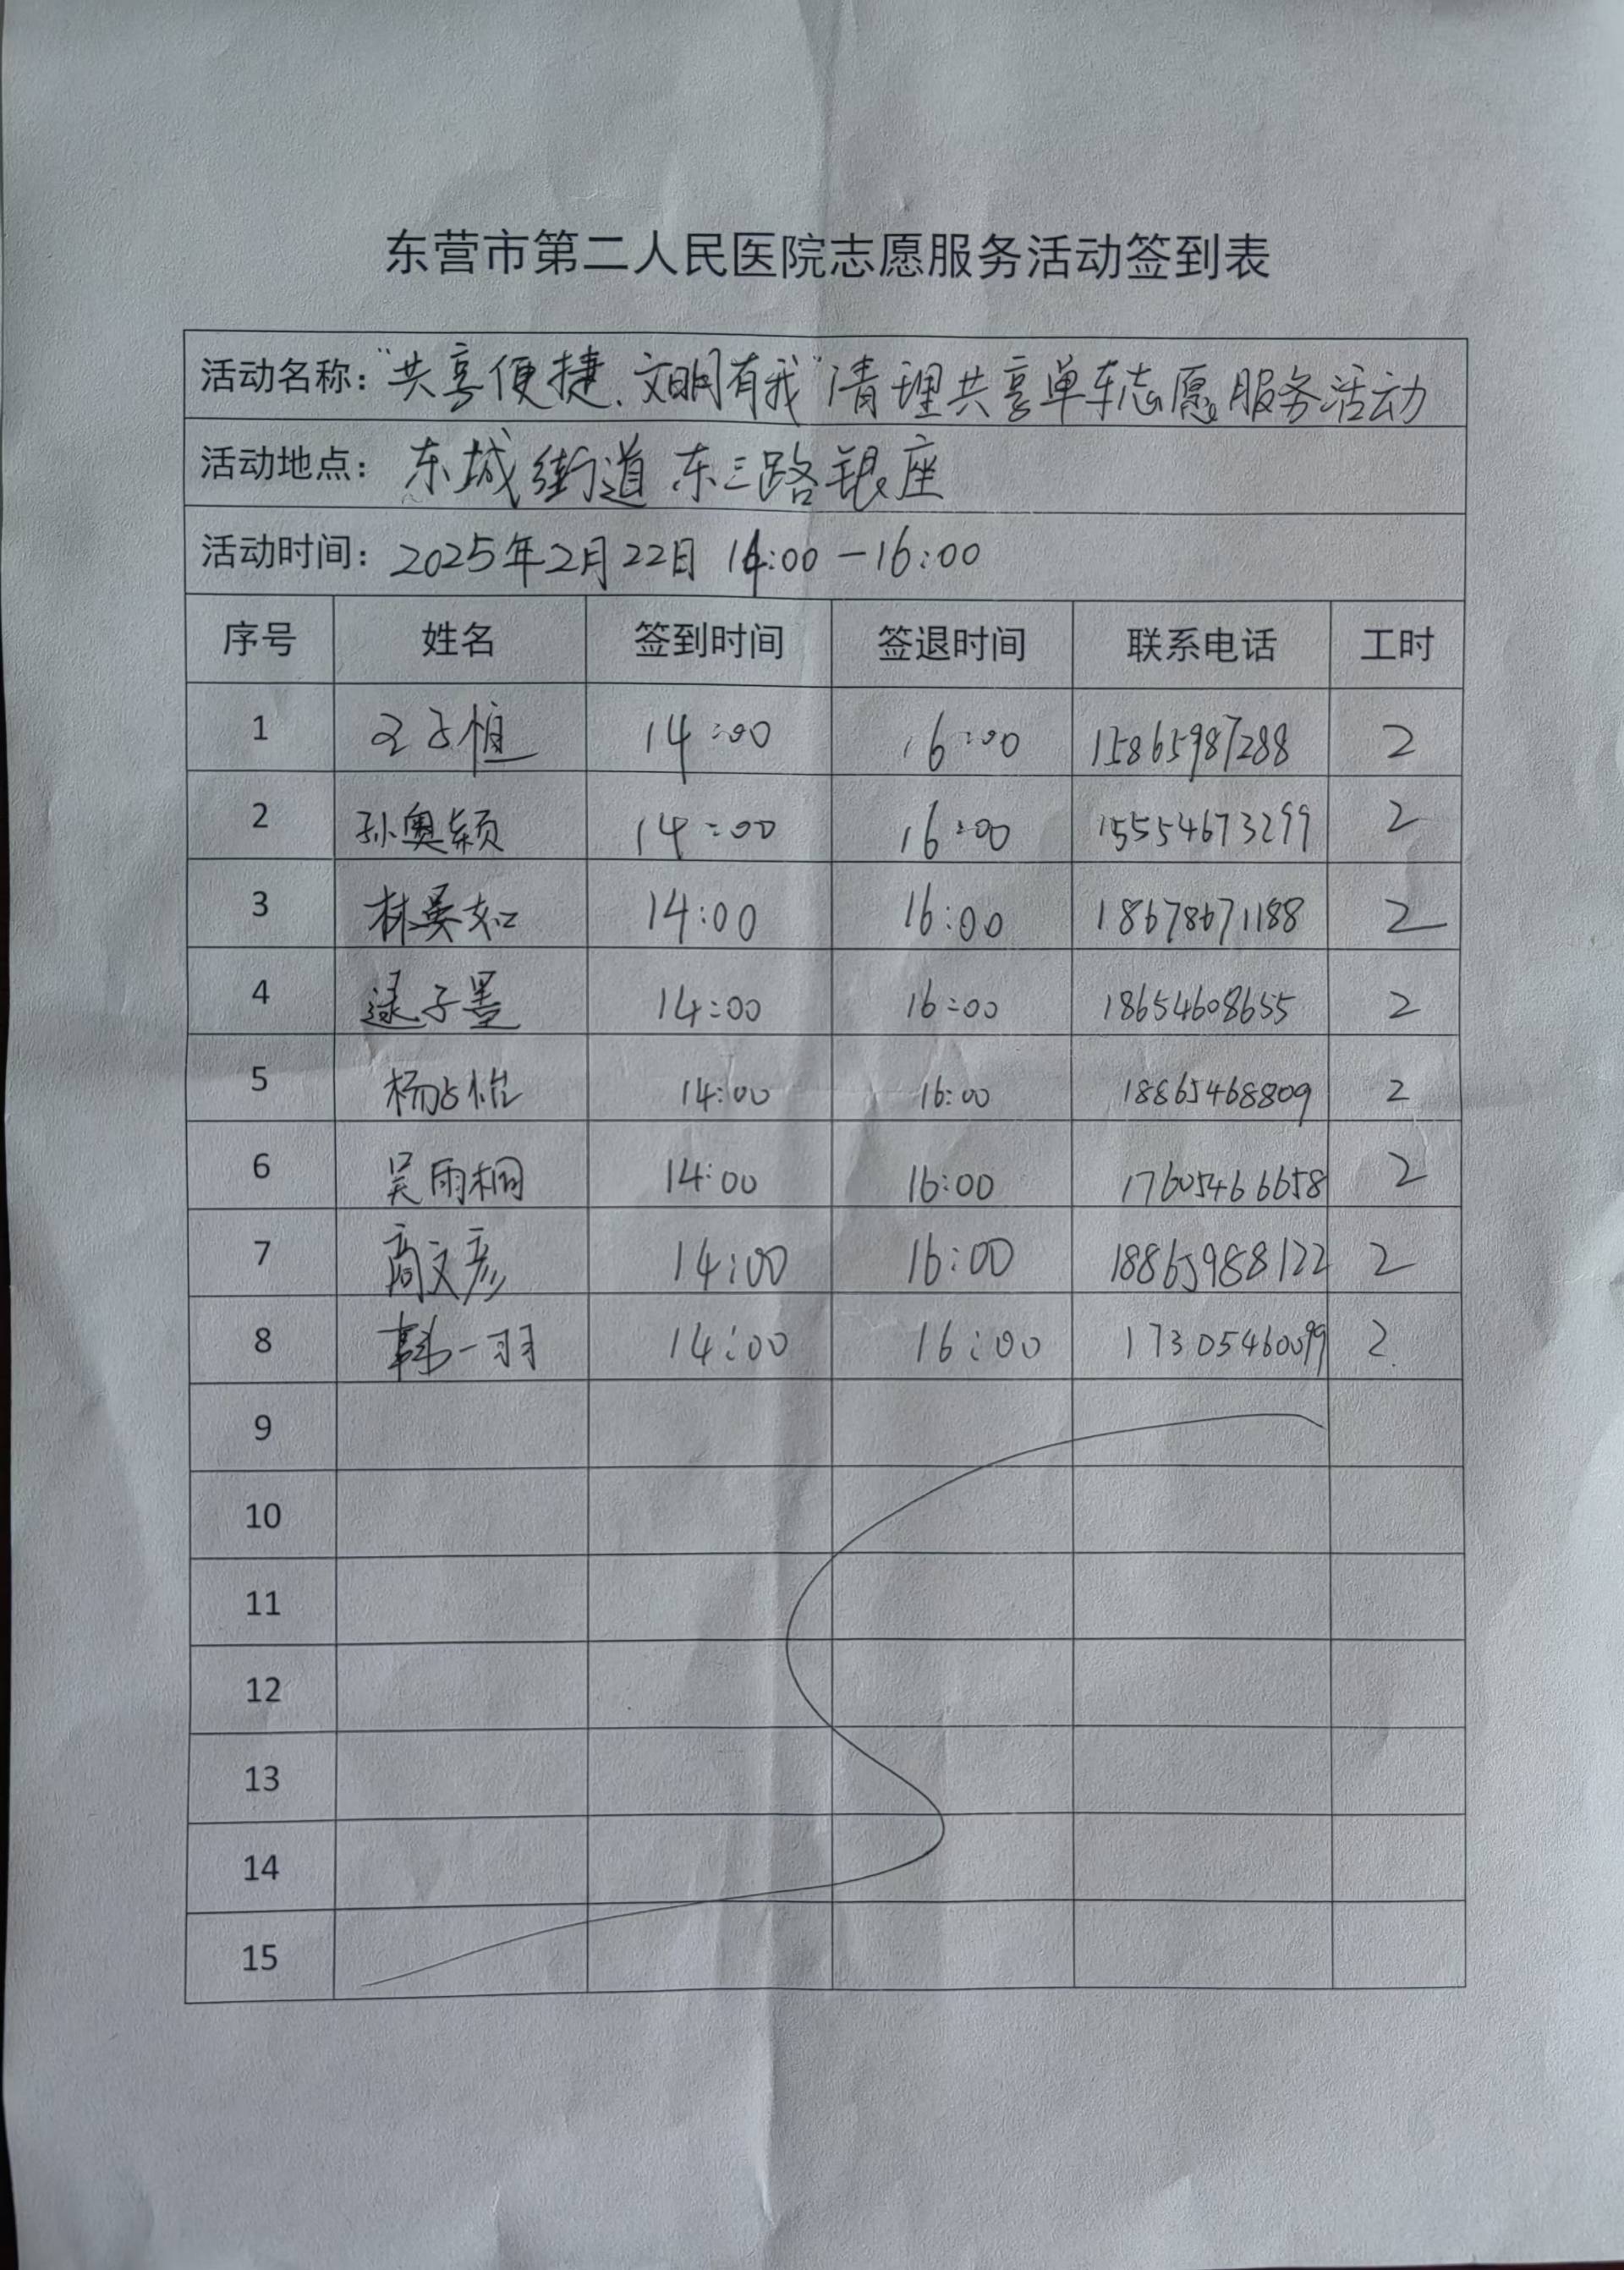 东营市第二人民医院志愿服务活动签到表
活动名称：“共享便捷、文明有我”清理共享单车志愿服务活动
活动地点：东城街道东三路银座
活动时间：2025年2月22日 14:00－16:00
序号 姓名 签到时间 签退时间 联系电话 工时
1 14:00 16:00 15865987288 2
2 孙奥颖 14:00 16:00 15554673299 2
3 林 14:00 16:00 18678671188 2
4 逯子墨 14:00 16:00 18654608655 2
5 杨 怡 14:00 16:00 18865468809 2
6 吴雨桐 14:00 16:00 17605466658 2
7 商文彦 14:00 16:00 18865988122 2
8 韩一羽 14:00 16:00 17305460099 2
9
10
11
12
13
14
15